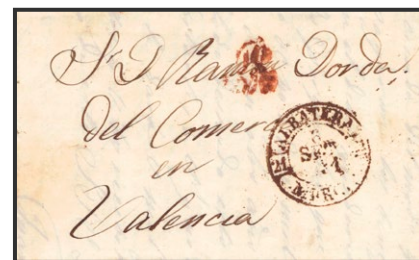 Sr D Ramon Dorda
del Comercio
en
Valencia
ALBATERA
SET
MURCIA